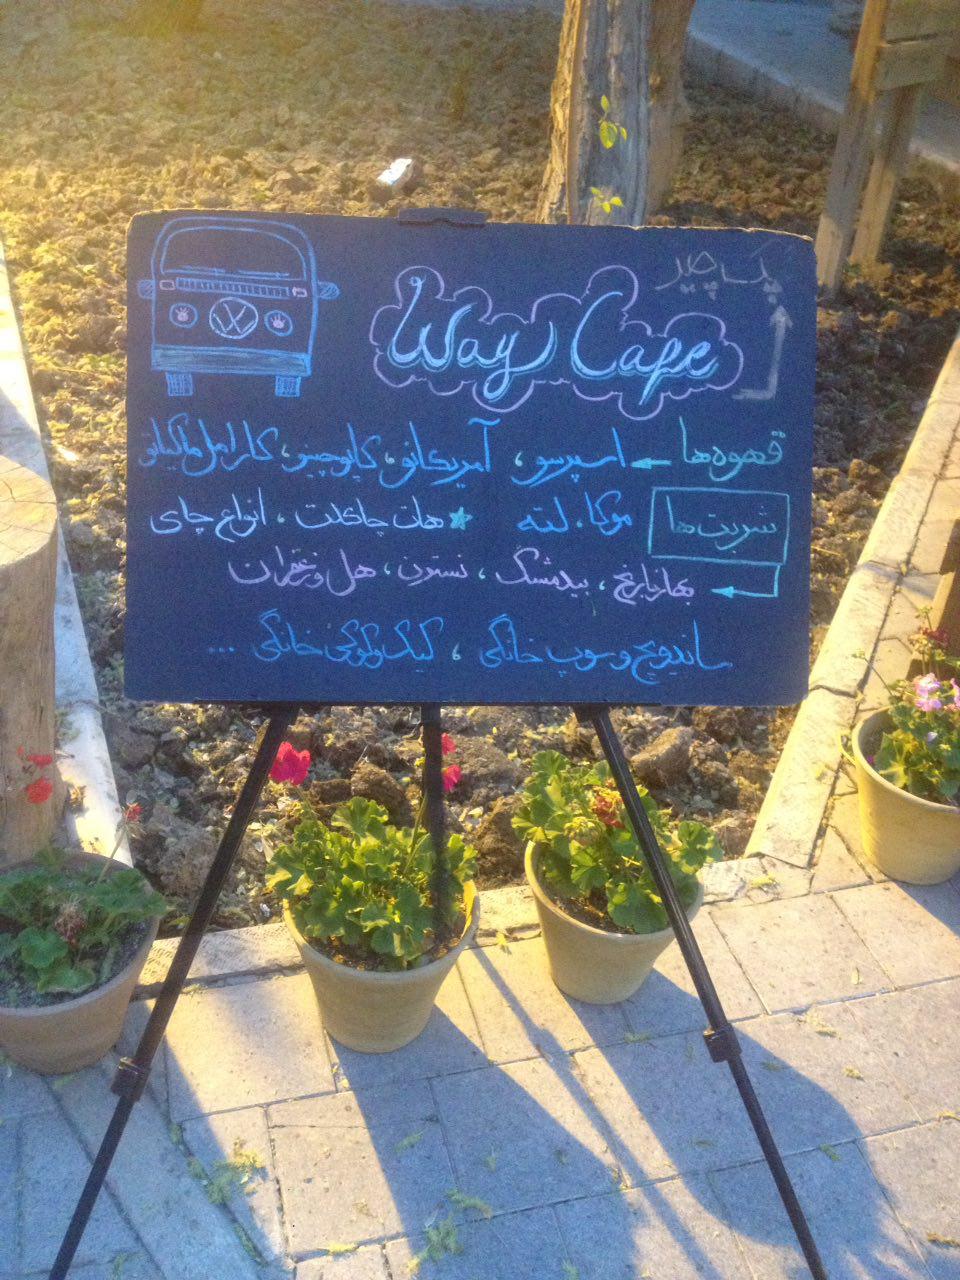 Way Cafe
قهوه‌ها ← اسپرسو، آمریکانو، کاپوچینو، کارامل ماکیاتو
موکا، لته ★ هات چاکلت، انواع چای
شربت‌ها
← بهارنارنج، بیدمشک، نسترن، هل و زعفران
ساندویچ و سوپ خانگی، کیک و کوکی خانگی ...